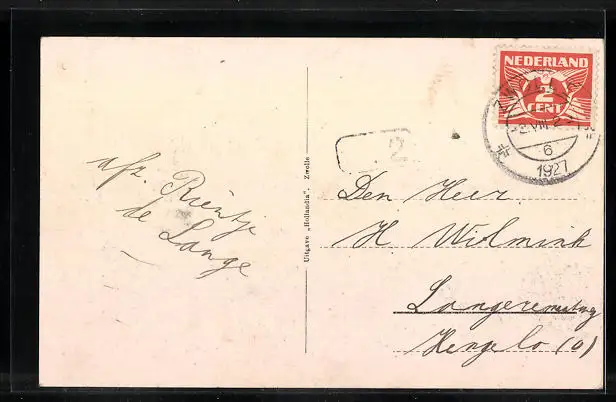 NEDERLAND
2
CENT
VIII
6
1927
2
afz. Rientje
de Lange
Uitgave „Hollandia", Zwolle
Den Heer
H Wiolmink
Hengelo (O)